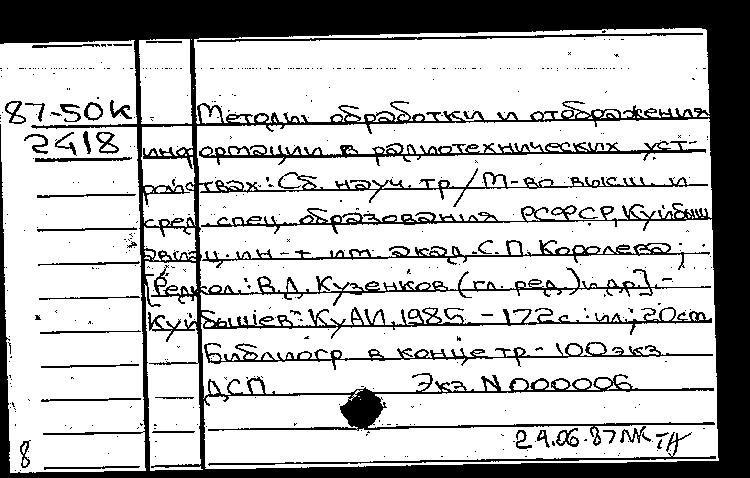 87-50К Методы обработки и отображения
2418 информации в радиотехнических уст-
ройствах: Сб. науч. тр./М-во высш. и
сред. спец. образования РСФСР, Куйбыш
авиац. ин-т им. акад. С.П. Королева;
[Редкол.: В.Д. Кузенков (гл. ред.) и др.]. -
Куйбышев: КуАИ, 1985. - 172 с.: ил.; 20 см.
Библиогр. в конце тр. - 100 экз.
ДСП. Экз. N 000006.
24.06.87
8